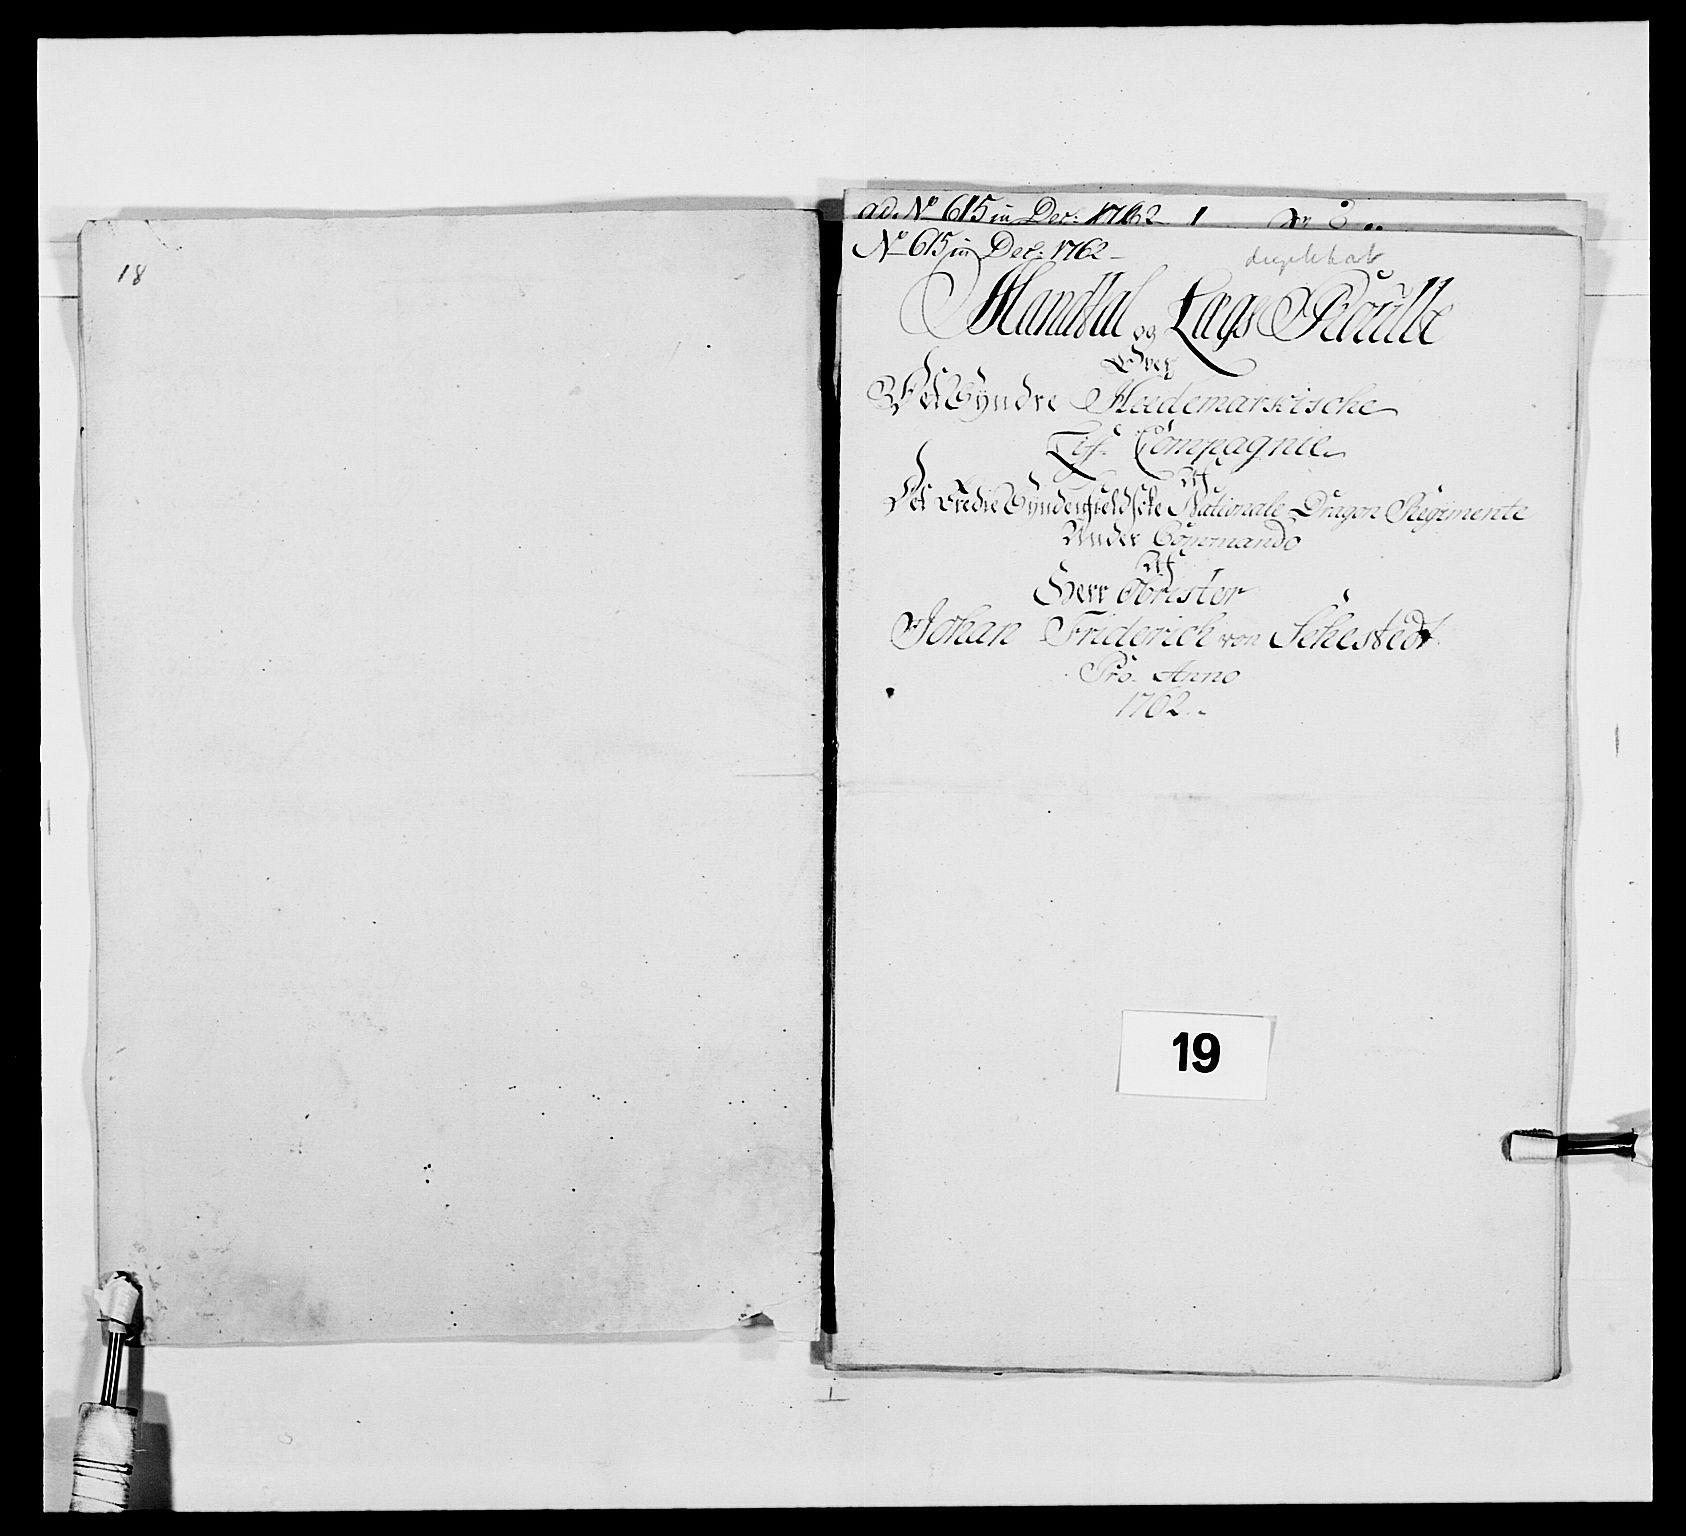 18
ad. No 615 in Dec: 1762 1
No 615 in Dec: 1762
duplikat
Mandtal og Lægs Roulle
Over
Det Syndre Hedemarkische
Lif Compagnie
Af
Det Tredie Syndenfieldske Nationale Dragon Regimente
Under Commando
Af
Herr Obrister
Johan Friderich von Schestedt
Pro Anno
1762
19